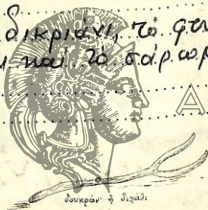 δικριάνι, τό φτυ
καί τό σάρωμ
Α
δουκράν' ἤ διχάλι